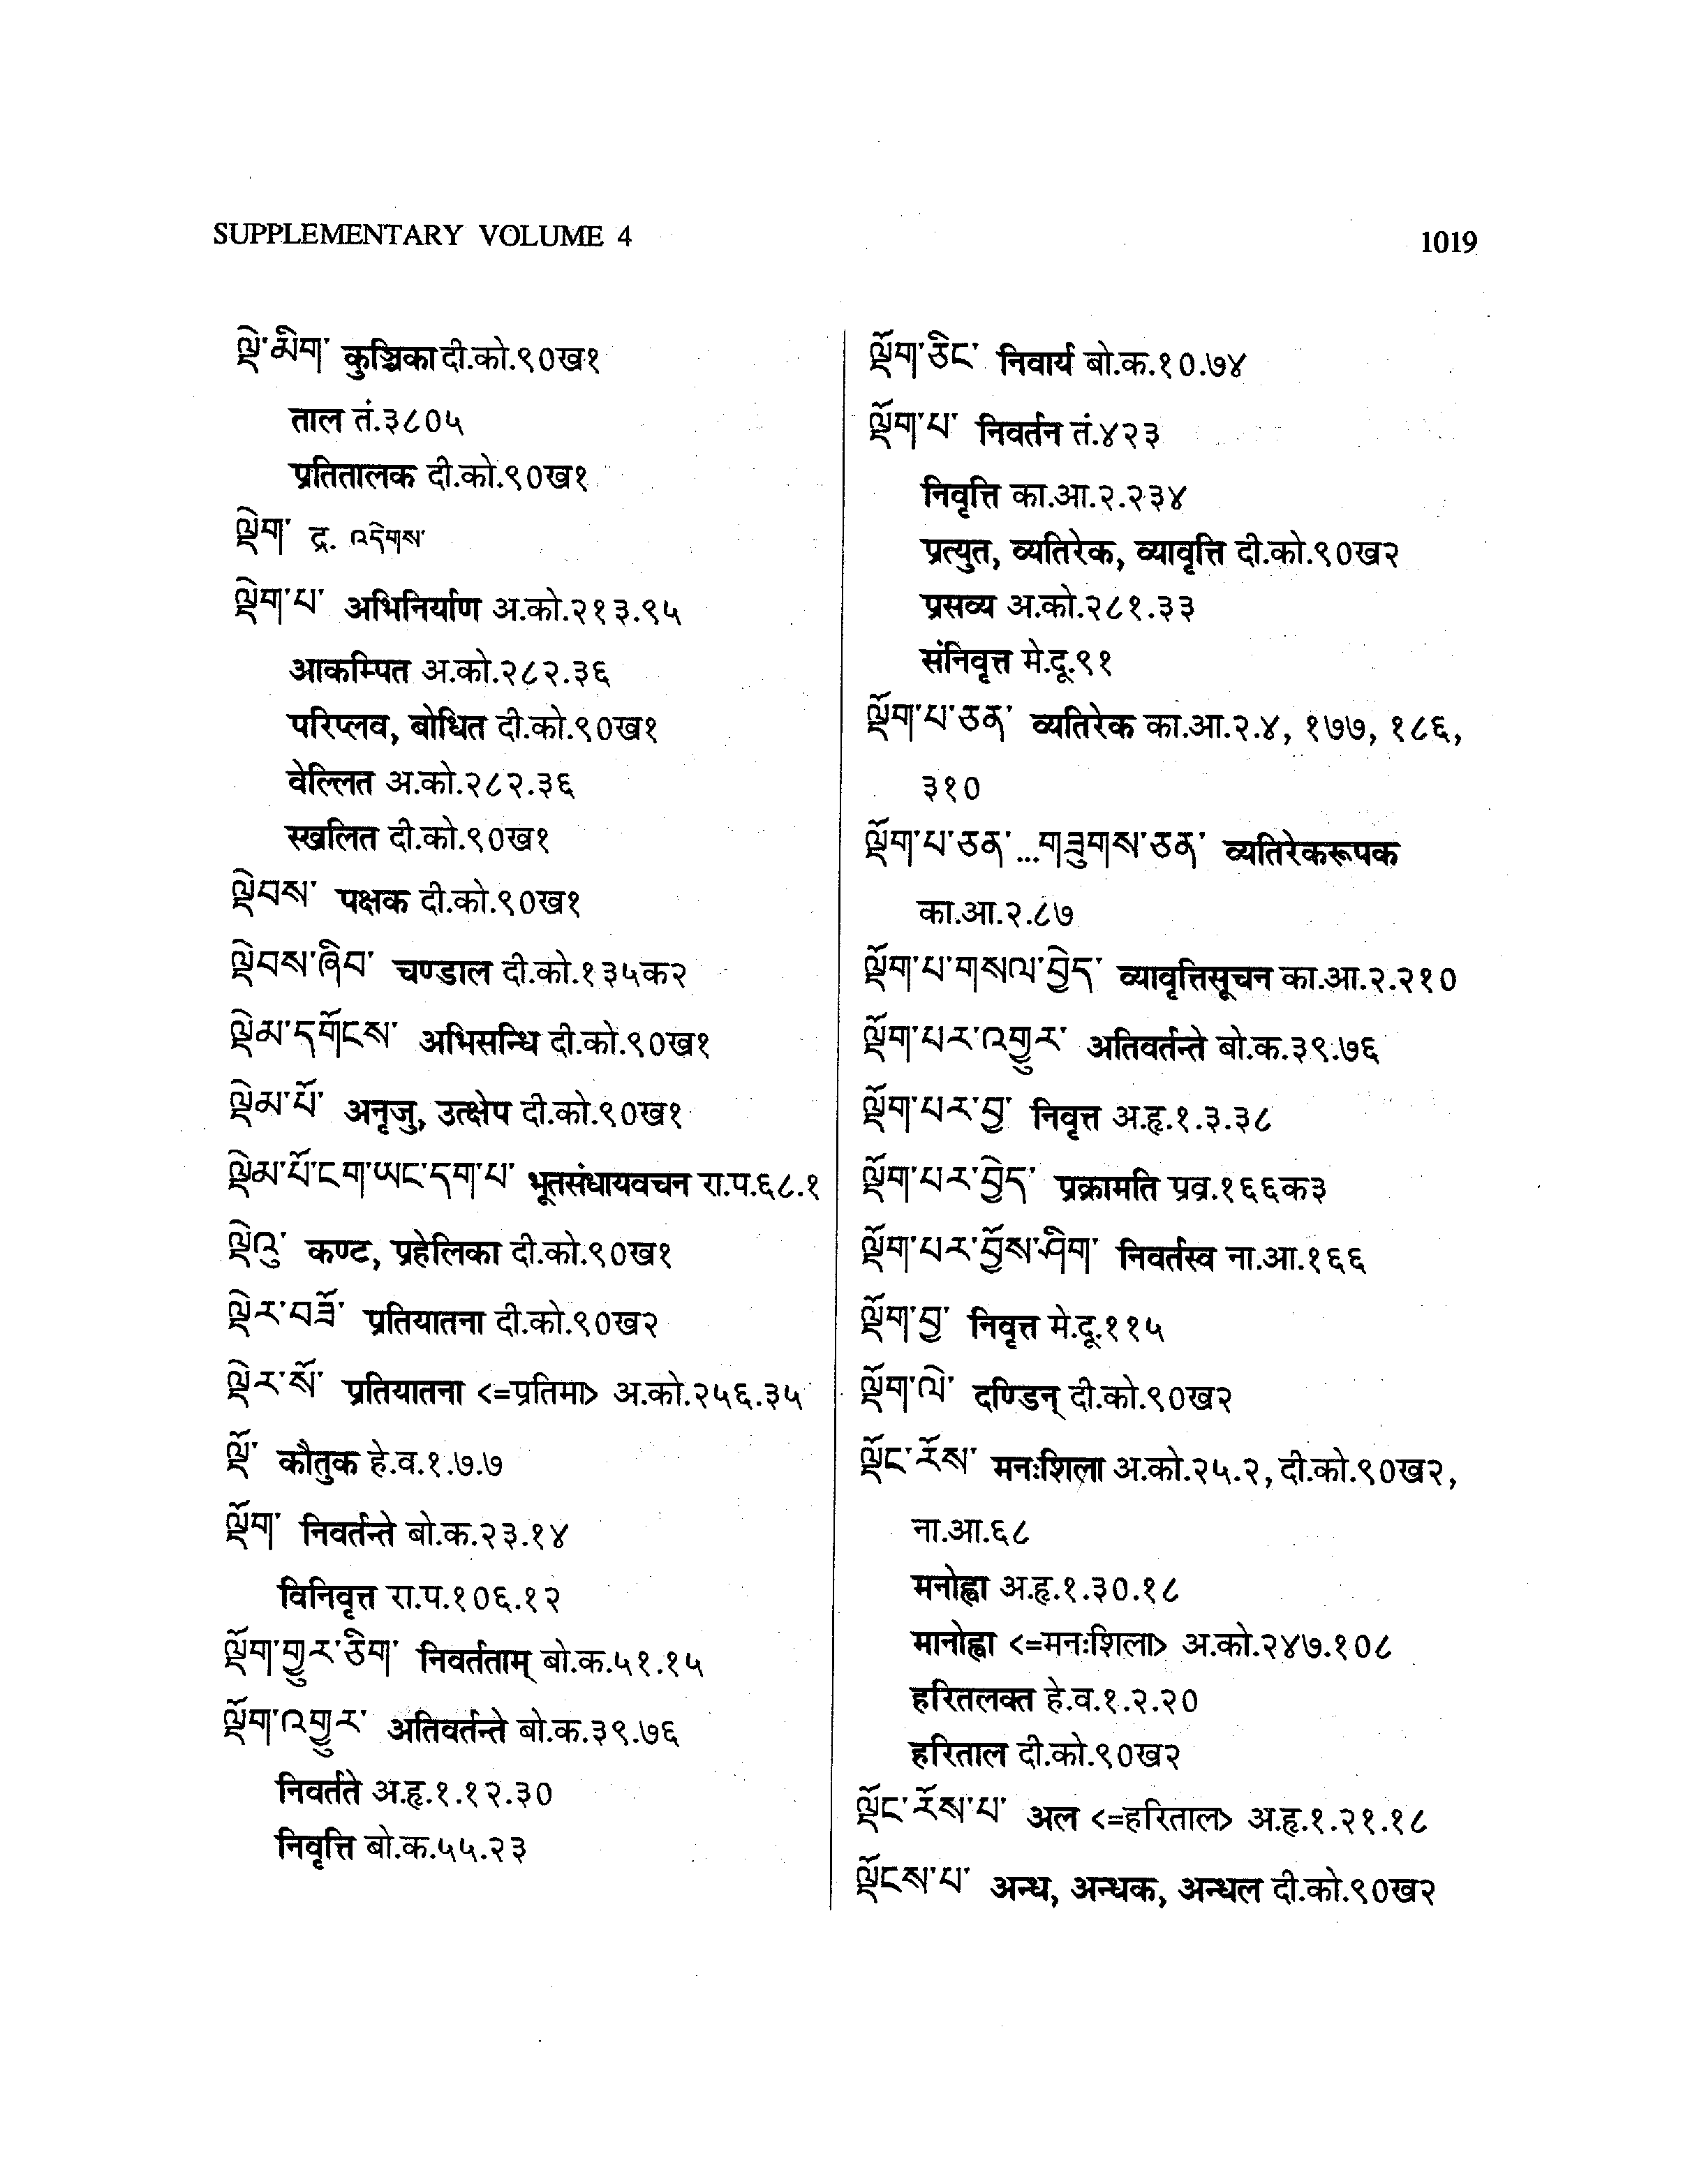 SUPPLEMENTARY VOLUME 4
1019
ལྡེ་མིག་ कुञ्चिका दी.को.९०ख१
ताल तं.३८०५
प्रतितालक दी.को.९०ख१
ལྡེག་ द्र. འདེགས་
ལྡེག་པ་ अभिनिर्याण अ.को.२१३.९५
आकम्पित अ.को.२८२.३६
परिप्लव, बोधित दी.को.९०ख१
वेल्लित अ.को.२८२.३६
स्खलित दी.को.९०ख१
ལྡེབས་ पक्षक दी.को.९०ख१
ལྡེབས་ཞིབ་ चण्डाल दी.को.१३५क२
ལྡེམ་དགོངས་ अभिसन्धि दी.को.९०ख१
ལྡེམ་པོ་ अनृजु, उत्क्षेप दी.को.९०ख१
ལྡེམ་པོ་ངག་ཡང་དག་པ་ भूतसंधायवचन रा.प.६८.१
ལྡེའུ་ कण्ट, प्रहेलिका दी.को.९०ख१
ལྡེར་བཟོ་ प्रतियातना दी.को.९०ख२
ལྡེར་སོ་ प्रतियातना <=प्रतिमा> अ.को.२५६.३५
ལྡོ་ कौतुक हे.व.१.७.७
ལྡོག་ निवर्तन्ते बो.क.२३.१४
विनिवृत्त रा.प.१०६.१२
ལྡོག་གྱུར་ཅིག་ निवर्तताम् बो.क.५१.१५
ལྡོག་འགྱུར་ अतिवर्तन्ते बो.क.३९.७६
निवर्तते अ.हृ.१.१२.३०
निवृत्ति बो.क.५५.२३
ལྡོག་ཅིང་ निवार्य बो.क.१०.७४
ལྡོག་པ་ निवर्तन तं.४२३
निवृत्ति का.आ.२.२३४
प्रत्युत, व्यतिरेक, व्यावृत्ति दी.को.९०ख२
प्रसव्य अ.को.२८१.३३
संनिवृत्त मे.दू.९१
ལྡོག་པ་ཅན་ व्यतिरेक का.आ.२.४, १७७, १८६,
३१०
ལྡོག་པ་ཅན་...གཟུགས་ཅན་ व्यतिरेकरूपक
का.आ.२.८७
ལྡོག་པ་གསལ་བྱེད་ व्यावृत्तिसूचन का.आ.२.२१०
ལྡོག་པར་འགྱུར་ अतिवर्तन्ते बो.क.३९.७६
ལྡོག་པར་བྱ་ निवृत्त अ.हृ.१.३.३८
ལྡོག་པར་བྱེད་ प्रक्रामति प्रव्र.१६६क३
ལྡོག་པར་བྱོས་ཤིག་ निवर्तस्व ना.आ.१६६
ལྡོག་བྱ་ निवृत्त मे.दू.११५
ལྡོག་ལེ་ दण्डिन् दी.को.९०ख२
ལྡོང་རོས་ मनःशिला अ.को.२५.२, दी.को.९०ख२,
ना.आ.६८
मनोह्वा अ.हृ.१.३०.१८
मानोह्वा <=मनःशिला> अ.को.२४७.१०८
हरितलक्त हे.व.१.२.२०
हरिताल दी.को.९०ख२
ལྡོང་རོས་པ་ अल <=हरिताल> अ.हृ.१.२१.१८
ལྡོངས་པ་ अन्ध, अन्धक, अन्धल दी.को.९०ख२